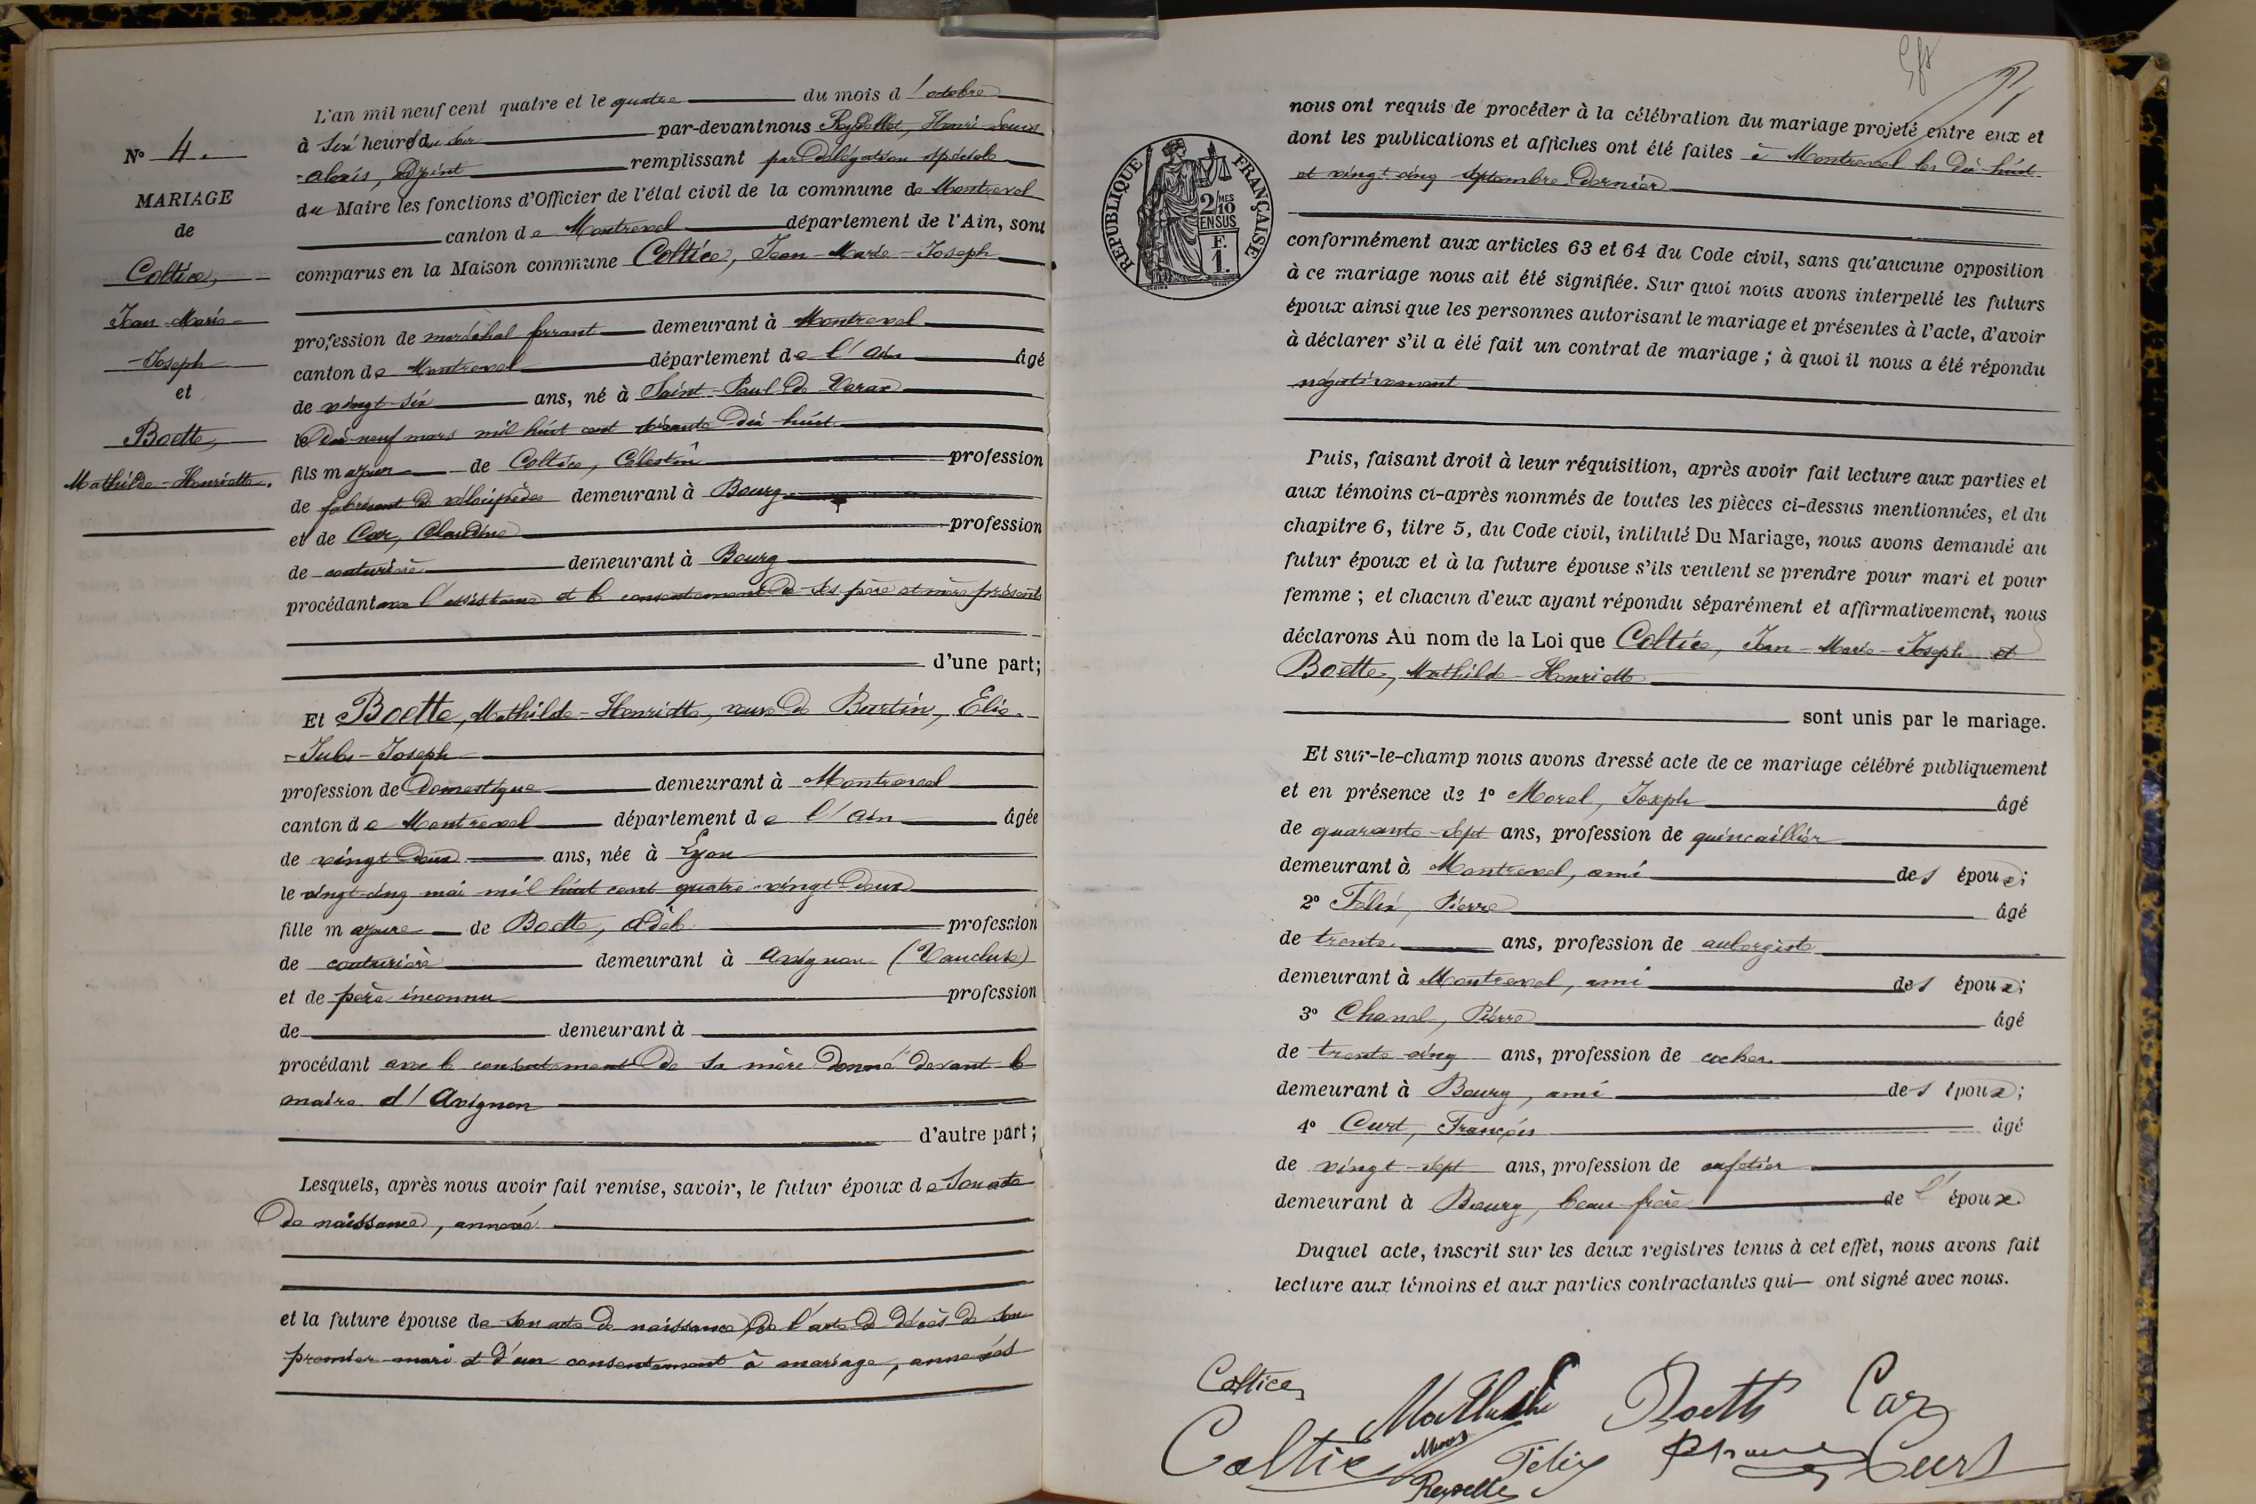 L'an mil neuf cent quatre et le quatre du mois d'octobre
à six heures du soir par-devant nous Reydellet, Henri-Louis
-Alexis, Adjoint remplissant par délégation spéciale
du Maire les fonctions d'Officier de l'état civil de la commune de Montrevel
canton de Montrevel département de l'Ain, sont
comparus en la Maison commune Coltice, Jean-Marie-Joseph
profession de maréchal ferrant demeurant à Montrevel
canton de Montrevel département de l'Ain âgé
de vingt-six ans, né à Saint-Paul de Varax
le dix-neuf mars mil huit cent soixante-dix-huit
fils majeur de Coltice, Célestin profession
de fabricant de vélocipèdes demeurant à Bourg
et de Car, Claudine profession
de couturière demeurant à Bourg
procédant avec l'assistance et le consentement de ses père et mère présents
d'une part;
Et Boette, Mathilde-Henriette, veuve de Burtin, Elie-
-Jules-Joseph
profession de domestique demeurant à Montrevel
canton de Montrevel département de l'Ain âgée
de vingt-deux ans, née à Lyon
le vingt-cinq mai mil huit cent quatre-vingt-deux
fille majeure de Boette, Adèle profession
de couturière demeurant à Avignon (Vaucluse)
et de père inconnu profession
de demeurant à
procédant avec le consentement de sa mère donné devant le
maire d'Avignon
d'autre part;
Lesquels, après nous avoir fait remise, savoir, le futur époux de son acte
de naissance, annexé
et la future épouse de son acte de naissance, de l'acte de décès de son
premier mari et d'un consentement à mariage, annexés
N° 4.
MARIAGE
de
Coltice,
Jean-Marie-
-Joseph
et
Boette,
Mathilde-Henriette.
RÉPUBLIQUE FRANÇAISE
2/10 MES
EN SUS
F.
1.
nous ont requis de procéder à la célébration du mariage projeté entre eux et
dont les publications et affiches ont été faites à Montrevel les dix-huit
et vingt-cinq septembre dernier
conformément aux articles 63 et 64 du Code civil, sans qu'aucune opposition
à ce mariage nous ait été signifiée. Sur quoi nous avons interpellé les futurs
époux ainsi que les personnes autorisant le mariage et présentes à l'acte, d'avoir
à déclarer s'il a été fait un contrat de mariage; à quoi il nous a été répondu
négativement
Puis, faisant droit à leur réquisition, après avoir fait lecture aux parties et
aux témoins ci-après nommés de toutes les pièces ci-dessus mentionnées, et du
chapitre 6, titre 5, du Code civil, intitulé Du Mariage, nous avons demandé au
futur époux et à la future épouse s'ils veulent se prendre pour mari et pour
femme; et chacun d'eux ayant répondu séparément et affirmativement, nous
déclarons Au nom de la Loi que Coltice, Jean-Marie-Joseph et
Boette, Mathilde-Henriette
sont unis par le mariage.
Et sur-le-champ nous avons dressé acte de ce mariage célébré publiquement
et en présence de 1° Morel, Joseph âgé
de quarante-sept ans, profession de quincaillier
demeurant à Montrevel, ami des époux;
2° Félix, Pierre âgé
de trente ans, profession de aubergiste
demeurant à Montrevel, ami des époux;
3° Chanel, Pierre âgé
de trente-cinq ans, profession de cocher
demeurant à Bourg, ami des époux;
4° Curt, François âgé
de vingt-sept ans, profession de cafetier
demeurant à Bourg, beau-frère de l'époux.
Duquel acte, inscrit sur les deux registres tenus à cet effet, nous avons fait
lecture aux témoins et aux parties contractantes qui ont signé avec nous.
Coltice
Mathilde Boette Car
Coltice Félix Curt